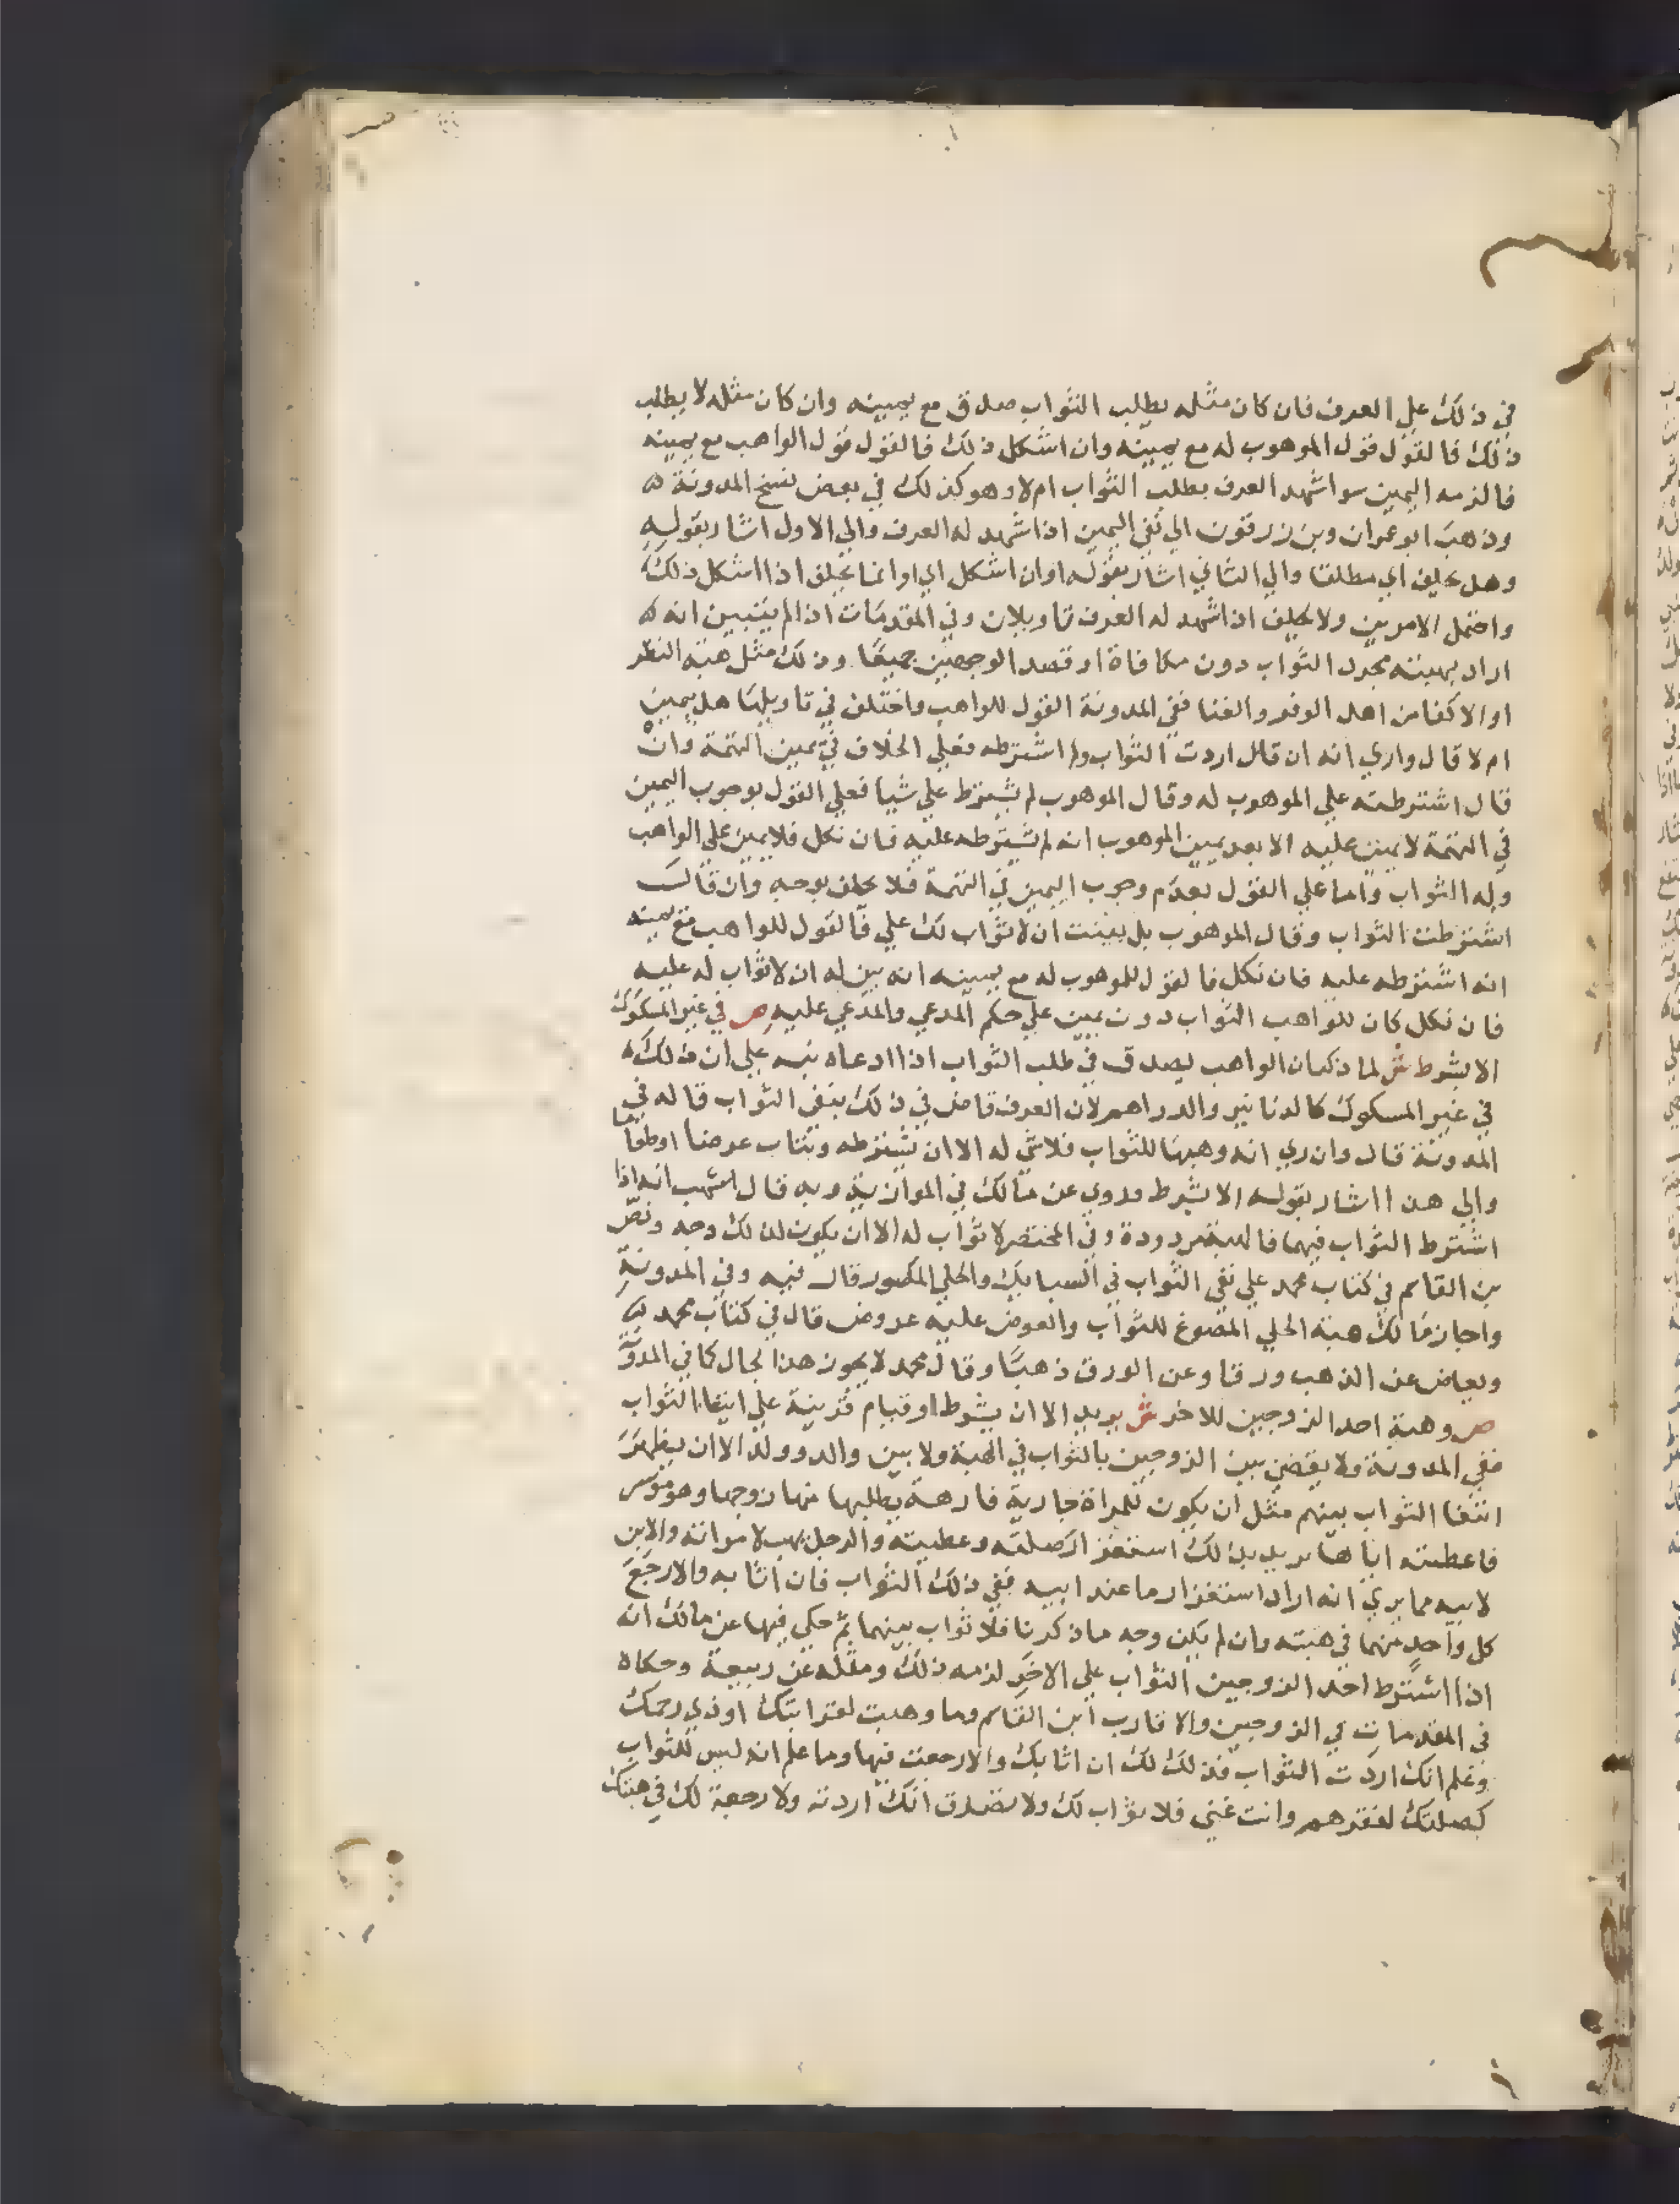 في ذلك علي العرف فان كان مثله يطلب الثواب صدق مع يمينه وان كان مثله لا يطلب
ذلك فالقول قول الموهوب له مع يمينه وان اشكل ذلك فالقول قول الواهب مع يمينه
فالزمه اليمين سوا شهد العرف بطلب الثواب ام لا وهو كذلك في بعض نسخ المدونة
وذهب ابو عمران وبن زرقون الي نفي اليمين اذا شهد له العرف والي الاول اشار بقوله
وهل يحلف اي مطلقا والي الثاني اشار بقوله او ان اشكل اي او انما يحلف اذا اشكل ذلك
واحتمل الامرين ولا يحلف اذا شهد له العرف تاويلان وفي المقدمات اذا لم يتبين انه
اراد بهبته مجرد الثواب دون مكافاة او قصد الوجهين جميعا وذلك مثل هبة النظر
او الاكفا من اهل الوفر والغنا ففي المدونة القول للواهب واختلف في تاويلها هل بيمين
ام لا قال واري انه ان قال اردت الثواب ولم اشترطه فعلي الخلاف في يمين التهمة وان
قال اشترطته علي الموهوب له وقال الموهوب لم يشترط علي شيا فعلي القول بوجوب اليمين
في التهمة لا يمين عليه الا بعد يمين الموهوب انه لم يشترطه عليه فان نكل فلا يمين علي الواهب
وله الثواب واما علي القول بعدم وجوب اليمين في التهمة فلا يحلف بوجه وان قال
اشترطت الثواب وقال الموهوب بل بينت ان لا ثواب لك علي فالقول للواهب مع يمينه
انه اشترطه عليه فان نكل فالقول للموهوب له مع يمينه انه بين له ان لا ثواب له عليه
فان نكل كان للواهب الثواب دون يمين علي حكم المدعي والمدعي عليه ص في غير المسكوك
الا بشرط ش لما ذكر ان الواهب يصدق في طلب الثواب اذا ادعاه نبه علي ان ذلك
في غير المسكوك كالدنانير والدراهم لان العرف قاض في ذلك بنفي الثواب قاله في
المدونة قال وان ري انه وهبها للثواب فلا شي له الا ان يشترطه ويثاب عرضا او طعاما
والي هذا اشار بقوله الا بشرط وروي عن مالك في الموازية وبه قال اشهب انه اذا
اشترط الثواب فيها فالهبة مردودة وفي المختصر لا ثواب له الا ان يكون لذلك وجه ونص
بن القاسم في كتاب محمد علي نفي الثواب في السبايك والحلي المكسور قال فيه وفي المدونة
واجاز مالك هبة الحلي المصوغ للثواب والعوض عليه عروض قال في كتاب محمد
ويعاض عن الذهب ورقا وعن الورق ذهبا وقال محمد لا يجوز هذا بحال كما في المدونة
ص وهبة احد الزوجين للاخر ش يريد الا ان يشرط او قيام قرينة علي ابتغا الثواب
ففي المدونة ولا يقضي بين الزوجين بالثواب في الهبة ولا بين والد وولد الا ان يظهر
ابتغا الثواب بينهم مثل ان يكون للمراة جارية فارهة يطلبها منها زوجها وهو موسر
فاعطته اياها يريد بذلك استغزار صلته وعطيته والرجل يهب لامراته والابن
لابيه مما يري انه اراد استغزار ما عند ابيه ففي ذلك الثواب فان اثابه والا رجع
كل واحد منهما في هبته وان لم يكن وجه ما ذكرنا فلا ثواب بينهما ثم حكي فيها عن مالك انه
اذا اشترط احد الزوجين الثواب علي الاخر لزمه ذلك ومثله عن ربيعة وحكاه
في المقدمات في الزوجين والاقارب ابن القاسم وما وهبت لقرابتك او ذي رحمك
وعلم انك اردت الثواب فذلك لك ان اثابك والا رجعت فيها وما علم انه ليس للثواب
كصلتك لفقرهم وانت غني فلا ثواب لك ولا تصدق انك اردته ولا رجعة لك في هبتك